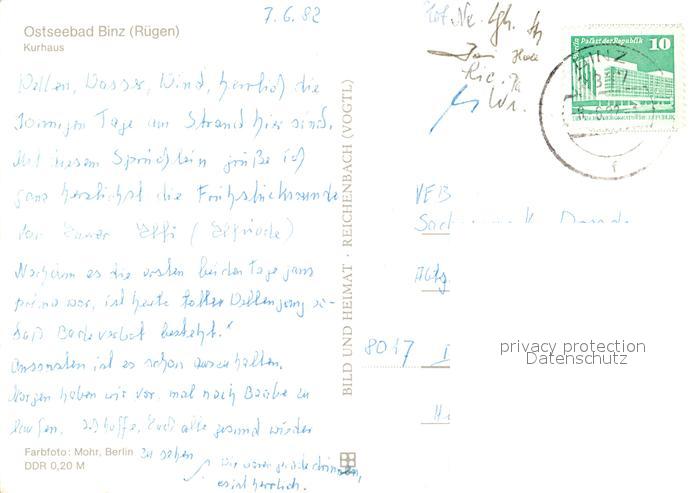 7.6.82
Ostseebad Binz (Rügen)
Kurhaus
Wellen, Wasser, Wind, herrlich die
sonnigen Tage am Strand hier sind.
Mit diesem Sprüchlein grüße ich
ganz herzlichst die Frühstücksrunde
Eure Elfi (Elfriede)
Nachdem es die ersten beiden Tage ganz
prima war, ist heute toller Wellengang so-
daß Badeverbot besteht.
Ansonsten ist es schon auszuhalten.
Morgen haben wir vor, mal nach Baabe zu
laufen. Ich hoffe, Euch alle gesund wieder
zu sehen
Wir waren gerade drinnen,
es ist herrlich.
Farbfoto: Mohr, Berlin
DDR 0,20 M
BILD UND HEIMAT · REICHENBACH (VOGTL)
Palast der Republik 10
BINZ
VEB
Abtg.
8017
privacy protection
Datenschutz